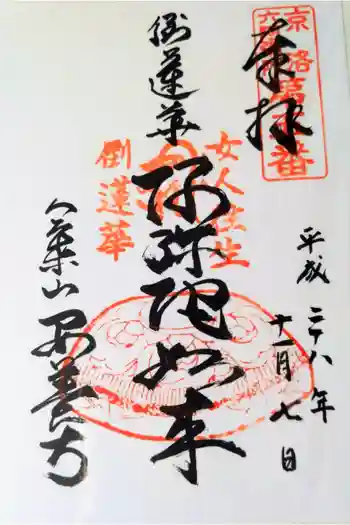 奉拝
第五番
平成二十八年
十一月七日
女人往生
阿弥陀如来
倒蓮華
倒蓮華
八葉山 安養寺